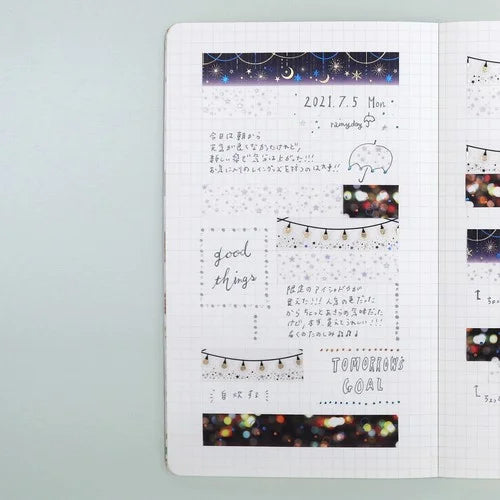 2021.7.5 Mon
rainyday
今日は朝から
天気が良くなかったけれど,
新しい傘で気分は上がった!!!
お気に入りのレイングッズを持つのは大事!!
good
things
限定のアイシャドウが
買えた!!! 人気の色だった
からちょっとあきらめ気味だった
けど,まず,買えてうれしい!!!
TOMORROW'S
GOAL
自炊する